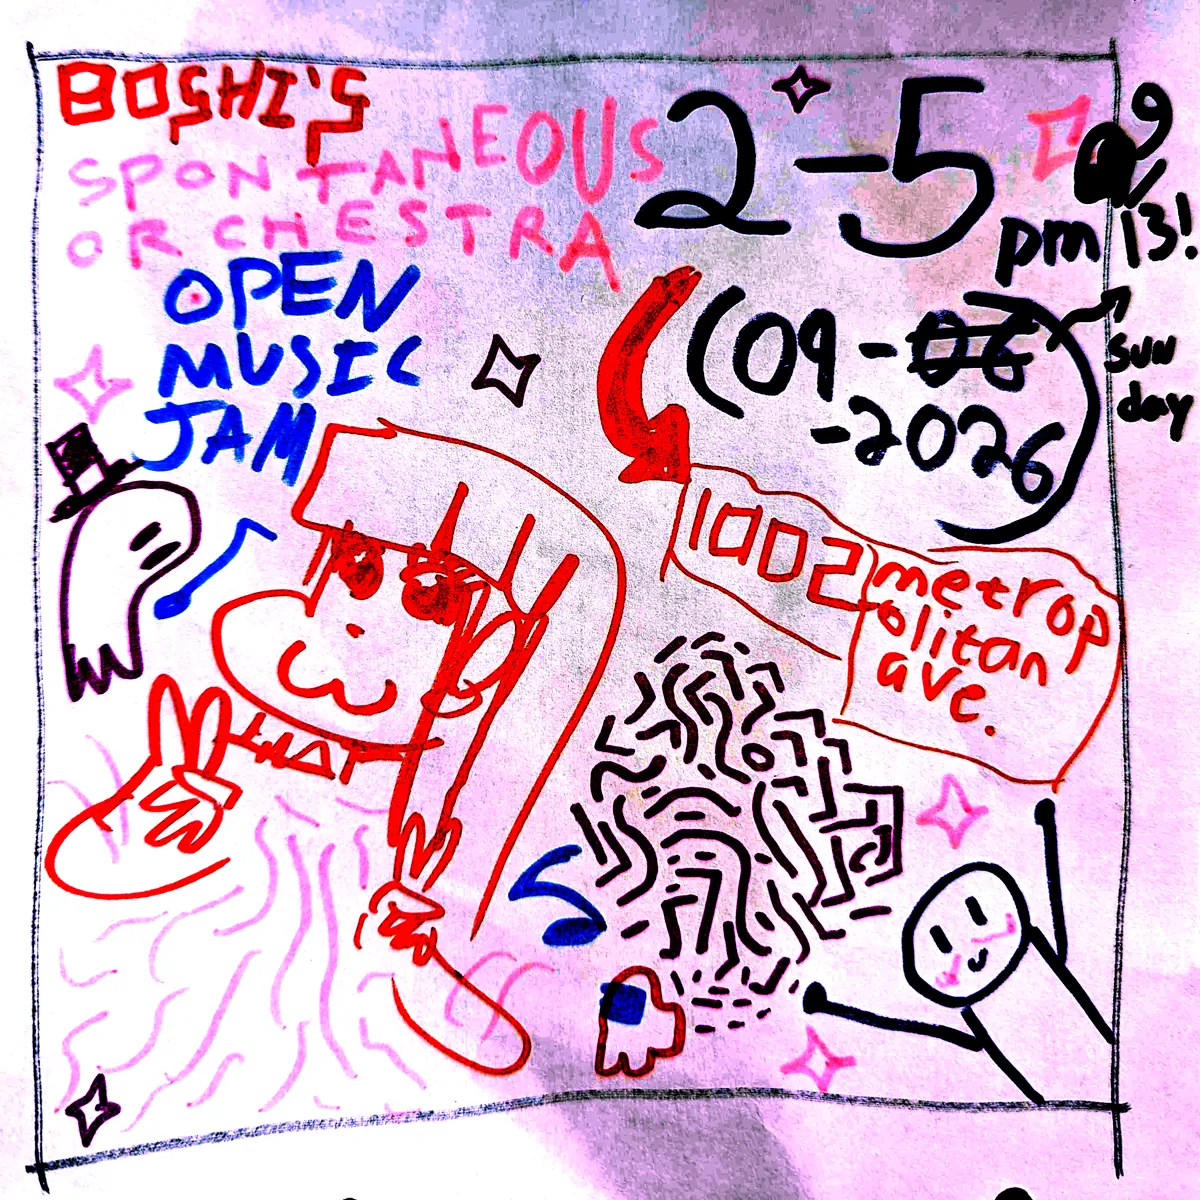 BOSHI'S
SPONTANEOUS
ORCHESTRA
OPEN
MUSIC
JAM
2-5
pm
9/
13!
(09-06
-2026)
SUN
day
1002
metrop
olitan
ave.